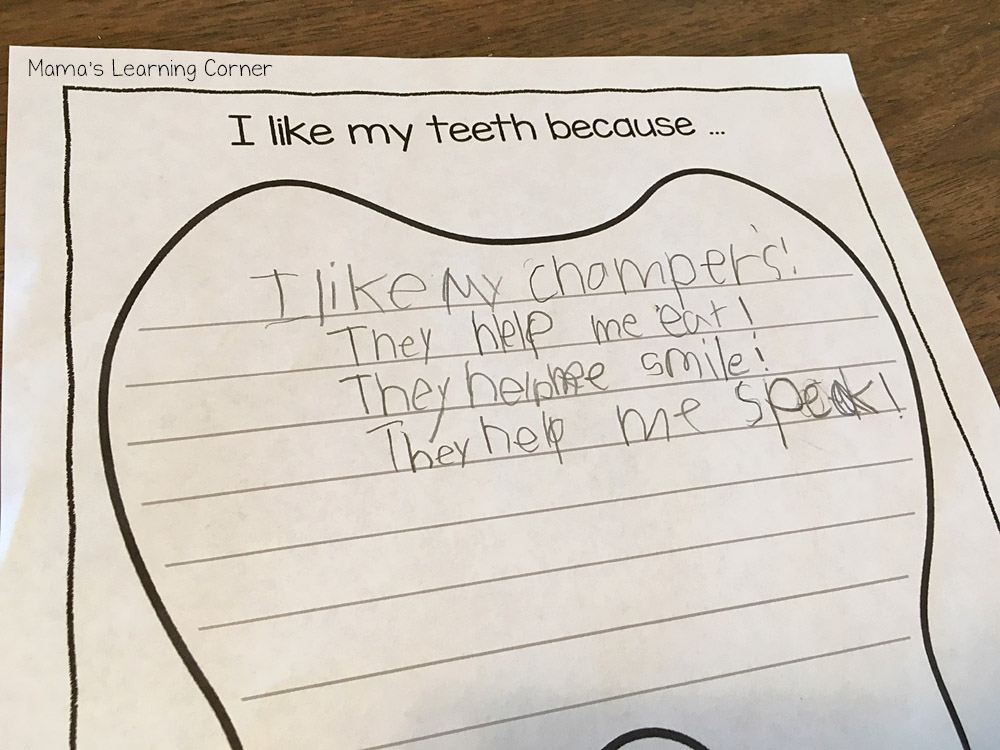 Mama's Learning Corner
I like my teeth because ...
I like My chompers!
They help me eat!
They help me smile!
They help me speak!